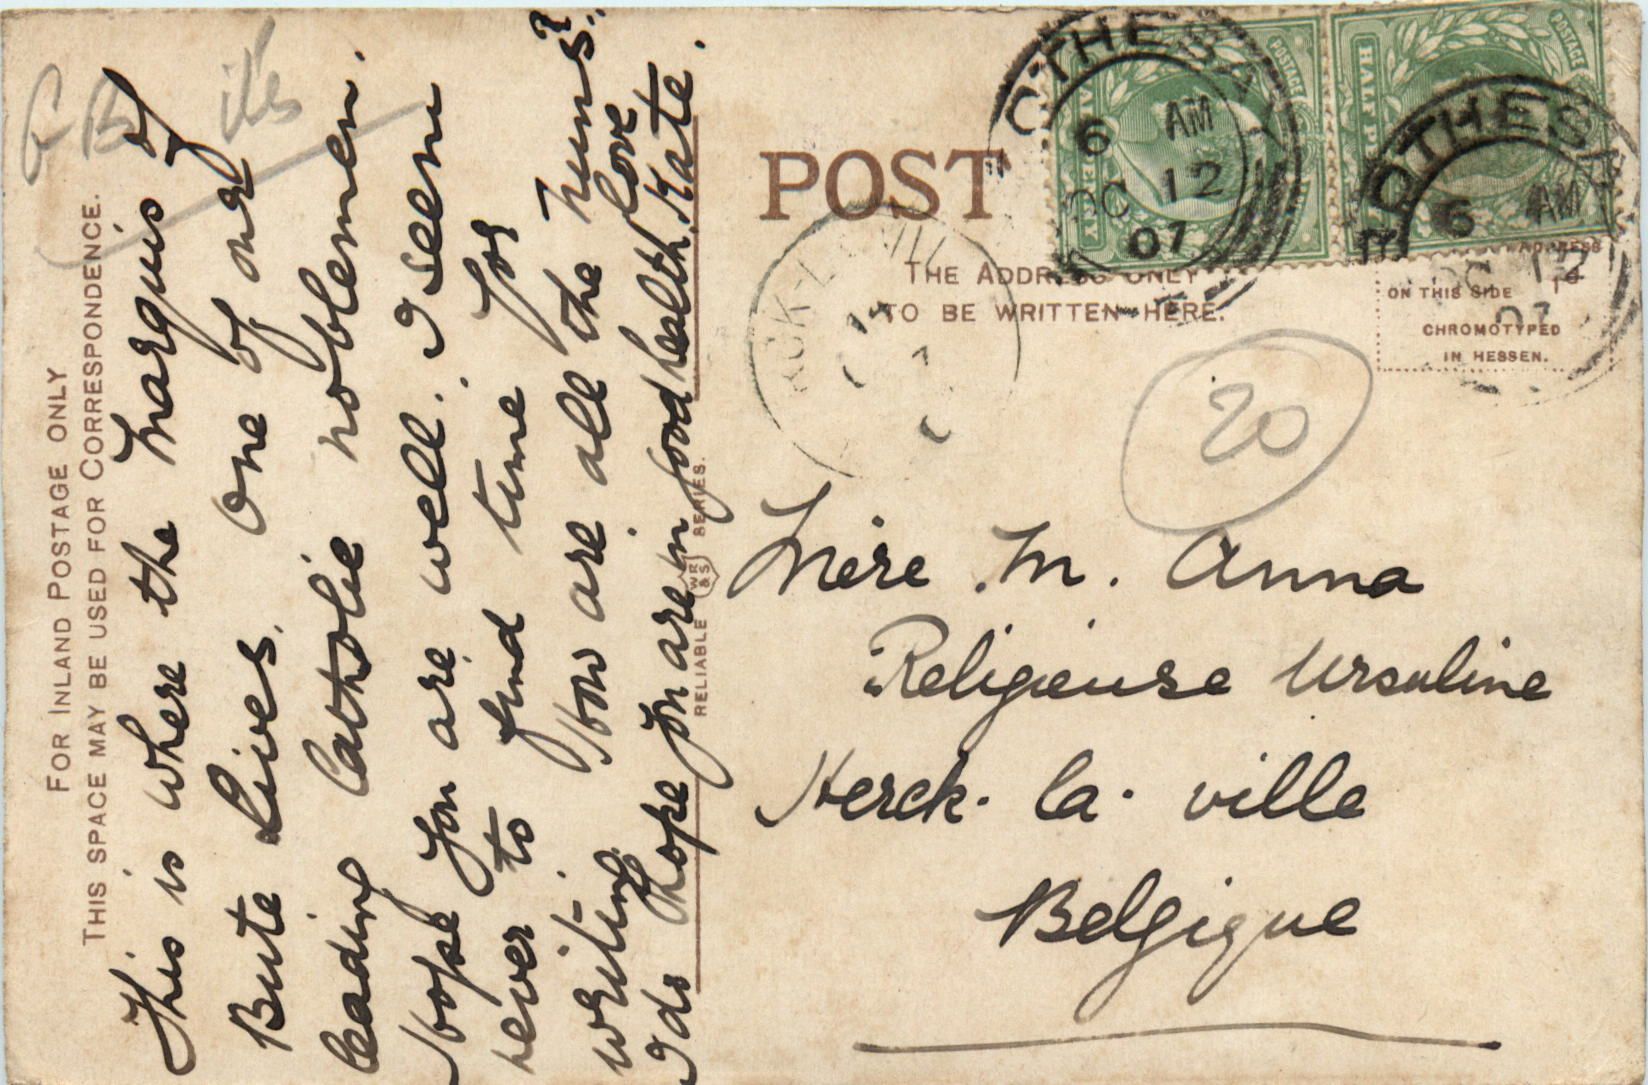 FOR INLAND POSTAGE ONLY
THIS SPACE MAY BE USED FOR CORRESPONDENCE.
This is where the Marquis of
Bute lives. One of our
leading Catholic noblemen.
Hope you are well. I seem
never to find time for
writing. How are all the nuns?
I do hope you are in good health. Love
Kate.
RELIABLE WR&S SERIES.
POST
THE ADDRESS ONLY
TO BE WRITTEN HERE.
ROTHESAY
6 AM
OC 12
07
ROTHESAY
6 AM
OC 12
07
POSTAGE
HALF PENNY
POSTAGE
ADDRESS
ON THIS SIDE
CHROMOTYPED
IN HESSEN.
20
Mère M. Anna
Religieuse Ursuline
Herck-la-ville
Belgique
GB